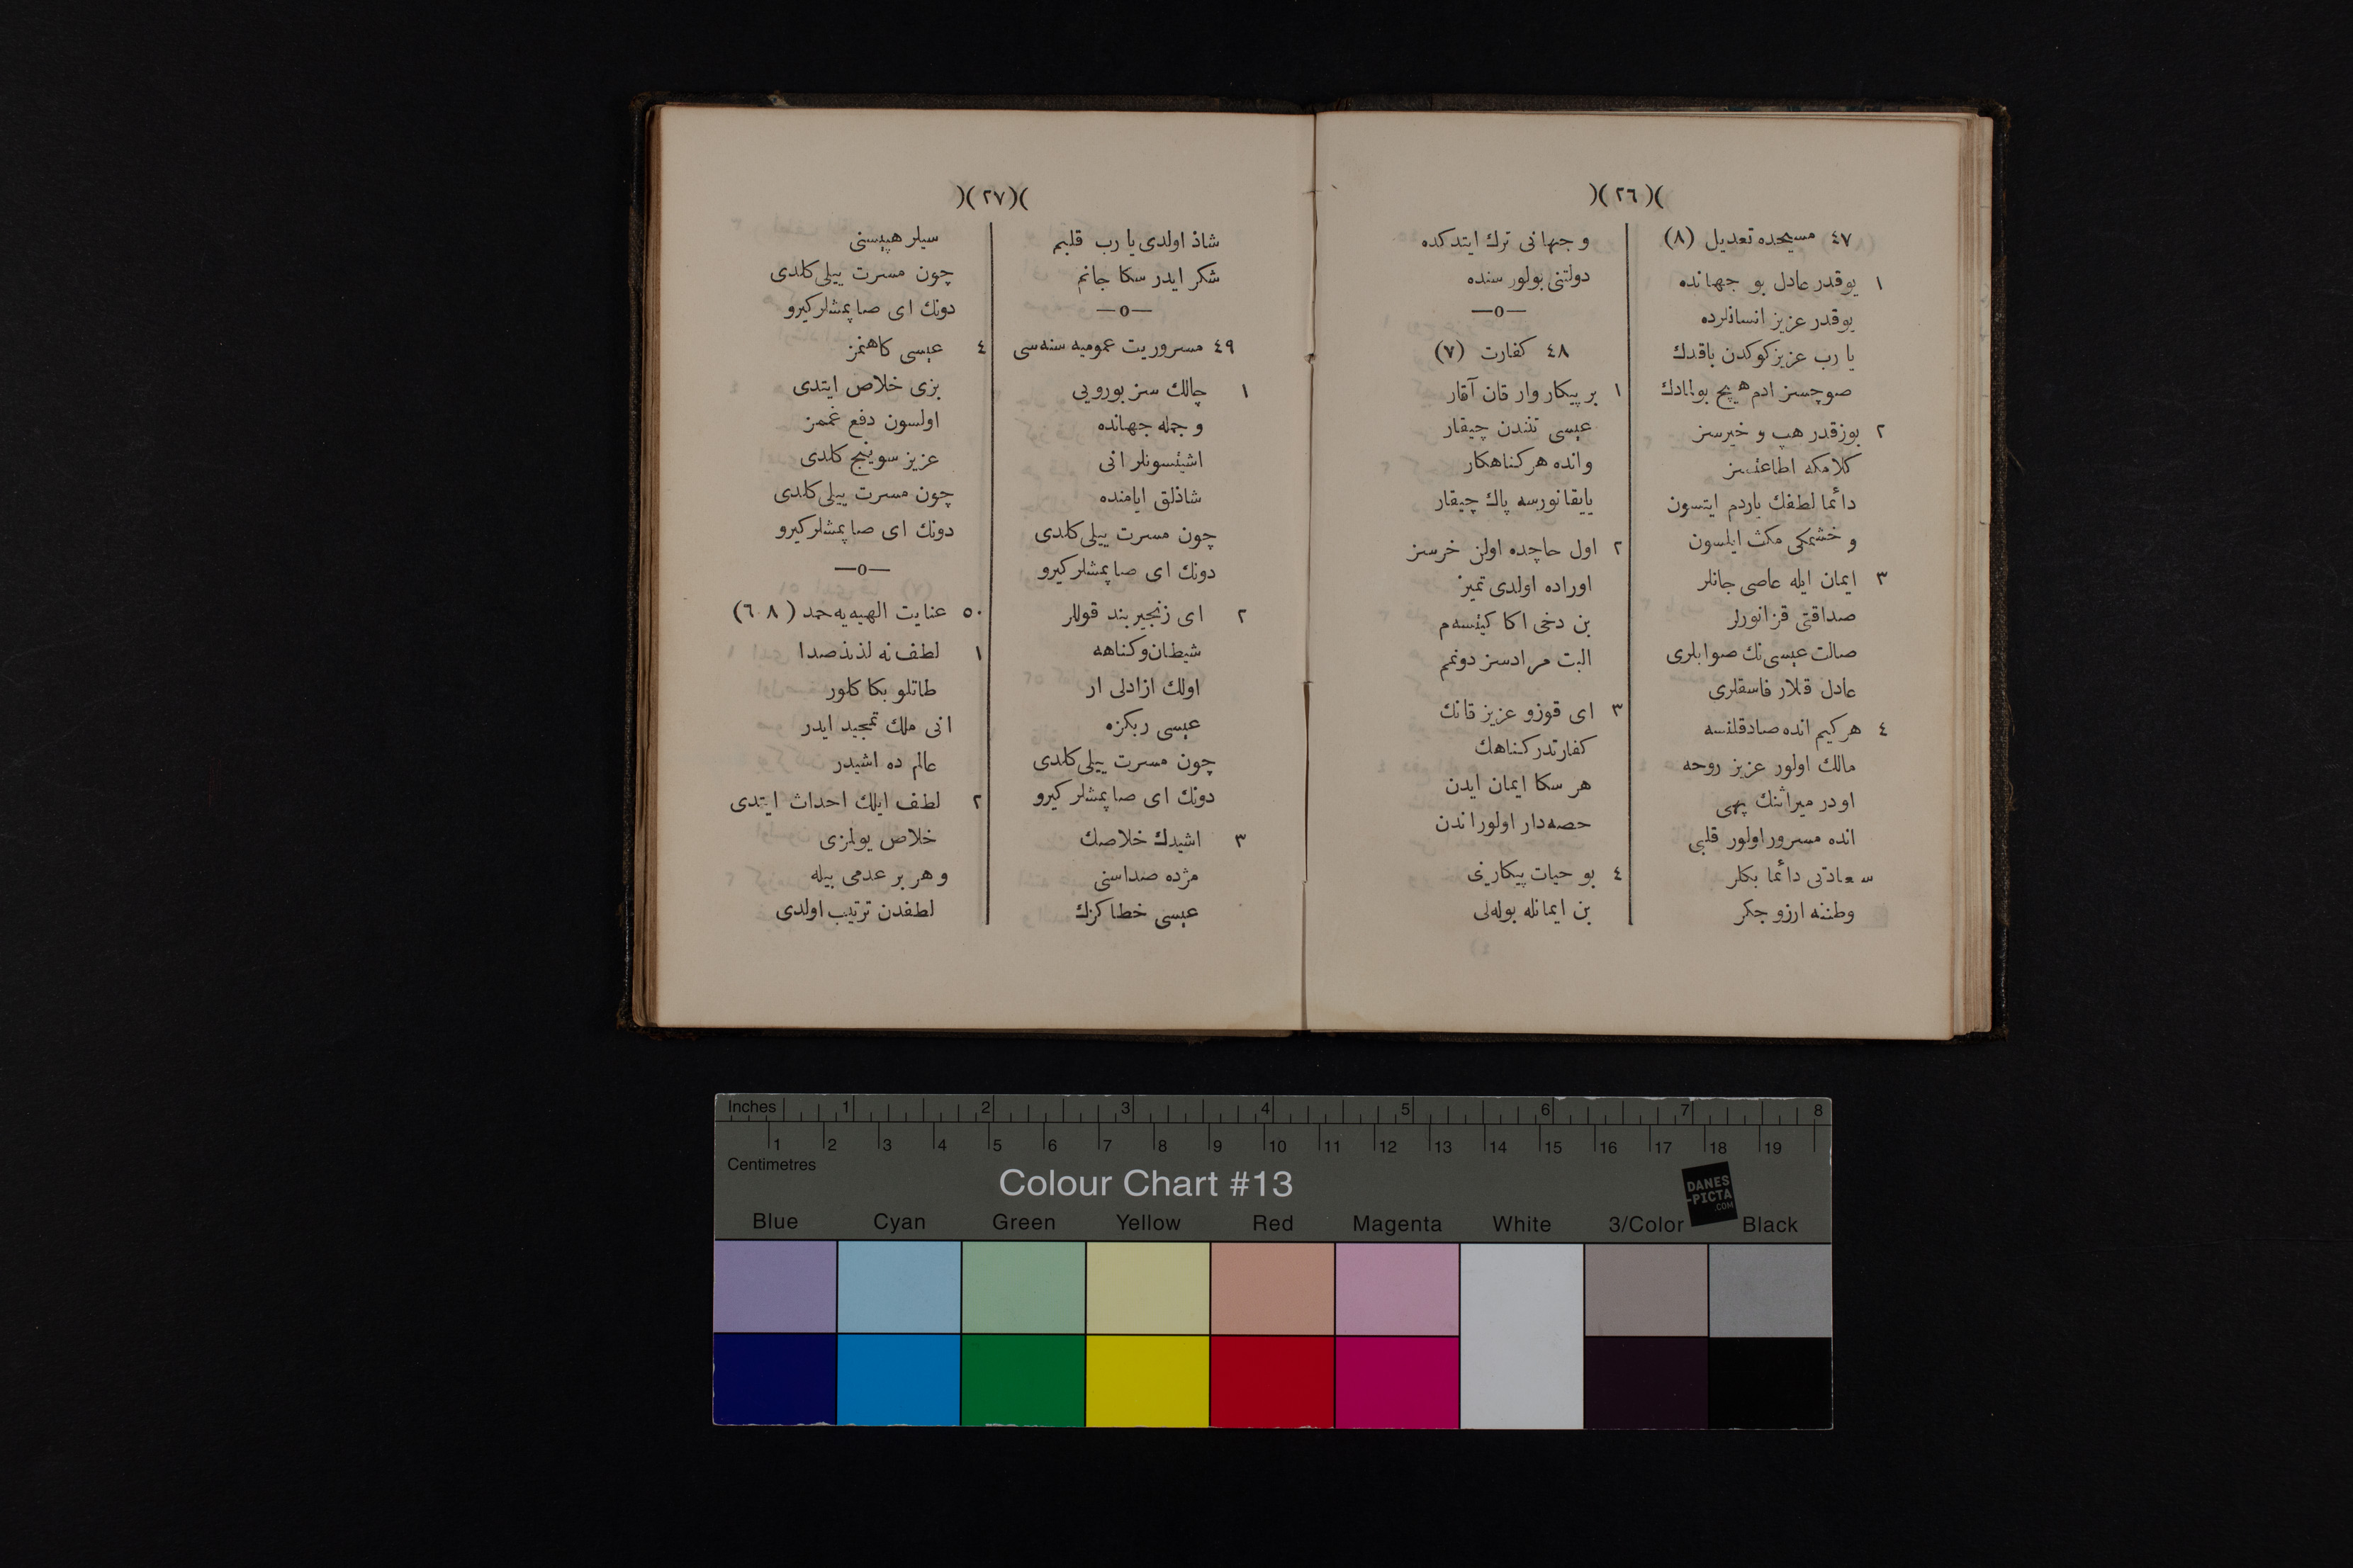 )(٢٦)(
٤٧ مسيحده تعديل (٨)
١ يوقدر عادل بو جهانده
يوقدر عزيز انسانلرده
يا رب عزيز كوكدن باقدك
صوچسز ادم هيچ بولمادك
٢ بوزقدر هپ و خيرسز
كلامكه اطاعتسز
دائما لطفك ياردم ايتسون
و خشمكى مكث ايلسون
٣ ايمان ايله عاصى جانلر
صداقتى قزانورلر
صالت عيسى نك صوابلرى
عادل قلار فاسقلرى
٤ هركيم انده صادقلنسه
مالك اولور عزيز روحه
اودر ميراثنك پهى
انده مسرور اولور قلبى
سعادتى دائما بكلر
وطننه ارزو چكر
و جهانى ترك ايتدكده
دولتنى بولور سنده
—o—
٤٨ كفارت (٧)
١ بر پيكار وار قان آقار
عيسى تنندن چيقار
وانده هركناهكار
يايقانورسه پاك چيقار
٢ اول حاچده اولن خرسز
اوراده اولدى تميز
بن دخى اكا كيتسه م
البت مرادسز دونمم
٣ اى قوزو عزيز قانك
كفارتدر كناهك
هر سكا ايمان ايدن
حصه دار اولور اندن
٤ بو حيات پيكارينى
بن ايمانله بوله لى
)(٢٧)(
شاذ اولدى يا رب قلبم
شكر ايدر سكا جانم
—o—
٤٩ مسروريت عموميه سنه سى
١ چالك سز بورويى
و جمله جهانده
اشيتسونلر انى
شاذلق ايامنده
چون مسرت ييلى كلدى
دونك اى صاپمشلر كيرو
٢ اى زنجير بند قوللر
شيطان و كناهه
اولك ازادلى ار
عيسى ربكزه
چون مسرت ييلى كلدى
دونك اى صاپمشلر كيرو
٣ اشيدك خلاصك
مژده صداسنى
عيسى خطاكزك
سيلر هپيسنى
چون مسرت ييلى كلدى
دونك اى صاپمشلر كيرو
٤ عيسى كاهنمز
بزى خلاص ايتدى
اولسون دفع غممز
عزيز سوينج كلدى
چون مسرت ييلى كلدى
دونك اى صاپمشلر كيرو
—o—
٥٠ عنايت الهيه يه حمد (٦٠٨)
١ لطف نه لذيذ صدا
طاتلو بكا كلور
انى ملك تمجيد ايدر
عالم ده اشيدر
٢ لطف ايلك احداث ايتدى
خلاص يولمزى
و هر بر عدمى بيله
لطفدن ترتيب اولدى
Inches 1 2 3 4 5 6 7 8
1 2 3 4 5 6 7 8 9 10 11 12 13 14 15 16 17 18 19
Centimetres
Colour Chart #13
DANES
-PICTA
.COM
Blue Cyan Green Yellow Red Magenta White 3/Color Black